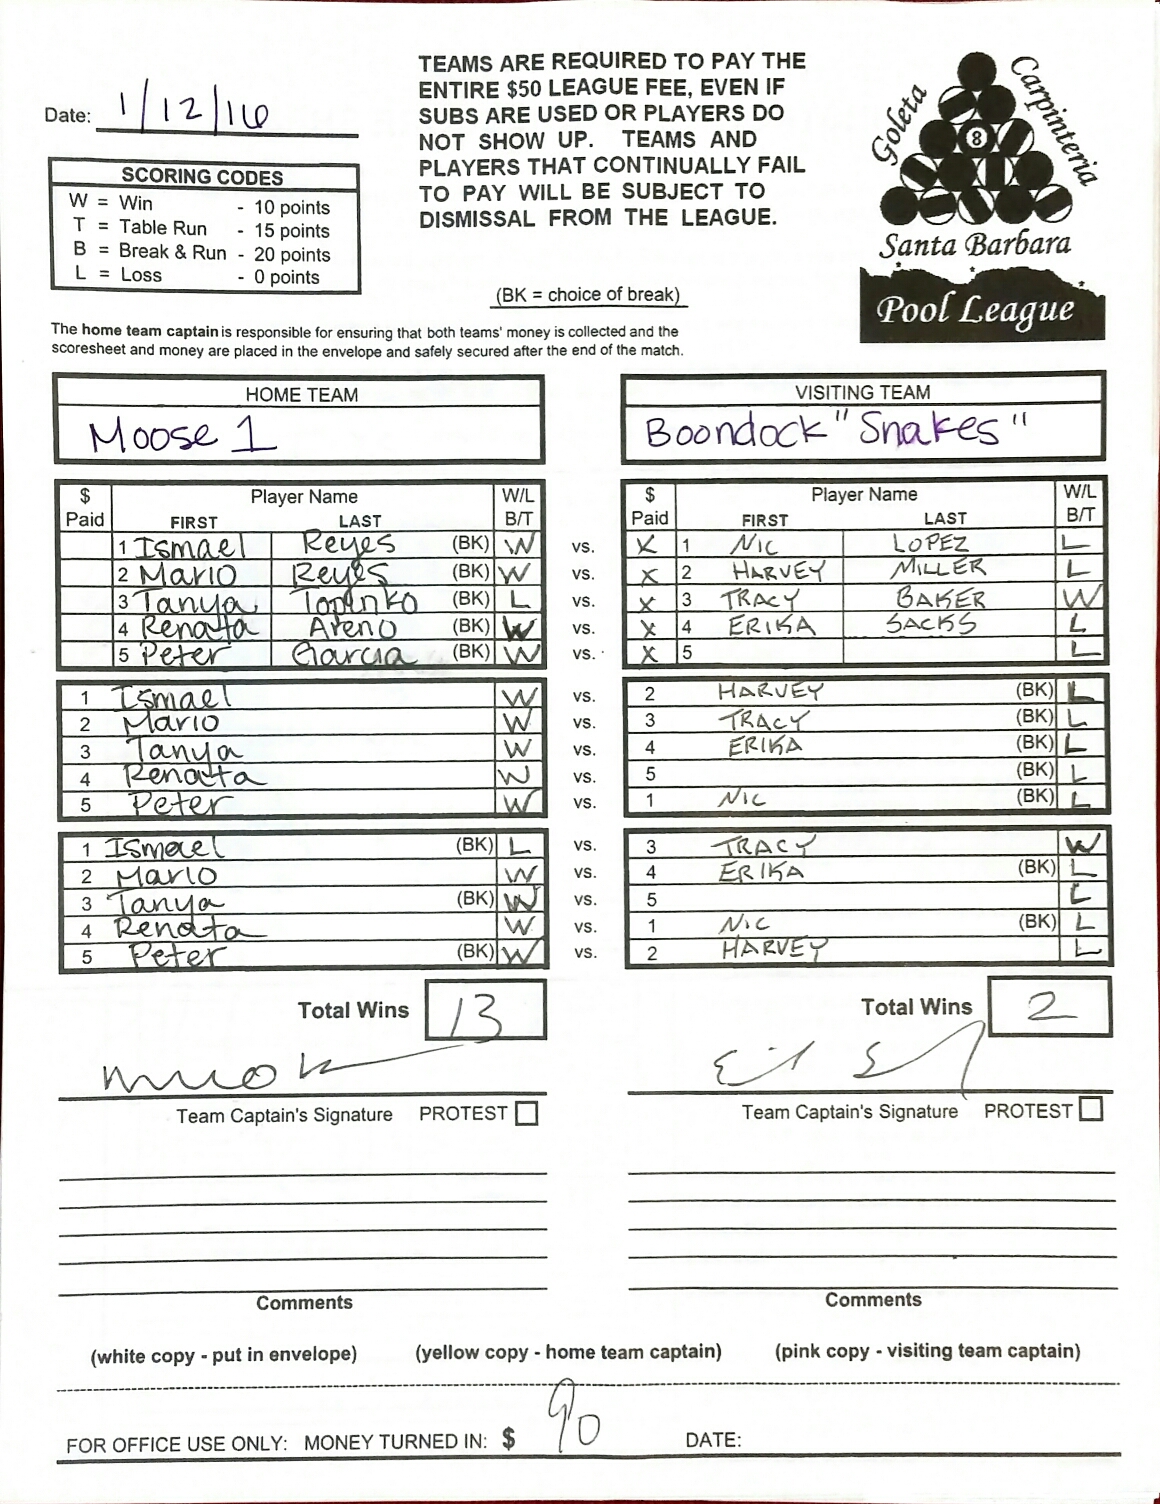 Date: 1/12/16
TEAMS ARE REQUIRED TO PAY THE
ENTIRE $50 LEAGUE FEE, EVEN IF
SUBS ARE USED OR PLAYERS DO
NOT SHOW UP. TEAMS AND
PLAYERS THAT CONTINUALLY FAIL
TO PAY WILL BE SUBJECT TO
DISMISSAL FROM THE LEAGUE.
Goleta
Carpinteria
8
Santa Barbara
Pool League
SCORING CODES
W = Win - 10 points
T = Table Run - 15 points
B = Break & Run - 20 points
L = Loss - 0 points
(BK = choice of break)
The home team captain is responsible for ensuring that both teams' money is collected and the
scoresheet and money are placed in the envelope and safely secured after the end of the match.
HOME TEAM VISITING TEAM
Moose 1 Boondock "Snakes"
$ Paid Player Name FIRST LAST W/L B/T $ Paid Player Name FIRST LAST W/L B/T
1 Ismael Reyes (BK) W vs. X 1 NIC LOPEZ L
2 Mario Reyes (BK) W vs. X 2 HARVEY MILLER L
3 Tanya (BK) L vs. X 3 TRACY BAKER W
4 Renata Areno (BK) W vs. X 4 ERIKA SACKS L
5 Peter Garcia (BK) W vs. X 5 L
1 Ismael W vs. 2 HARVEY (BK) L
2 Mario W vs. 3 TRACY (BK) L
3 Tanya W vs. 4 ERIKA (BK) L
4 Renata W vs. 5 (BK) L
5 Peter W vs. 1 NIC (BK) L
1 Ismael (BK) L vs. 3 TRACY W
2 Mario W vs. 4 ERIKA (BK) L
3 Tanya (BK) W vs. 5 L
4 Renata W vs. 1 NIC (BK) L
5 Peter (BK) W vs. 2 HARVEY L
Total Wins 13 Total Wins 2
Team Captain's Signature PROTEST Team Captain's Signature PROTEST
Comments Comments
(white copy - put in envelope) (yellow copy - home team captain) (pink copy - visiting team captain)
FOR OFFICE USE ONLY: MONEY TURNED IN: $ 90 DATE: